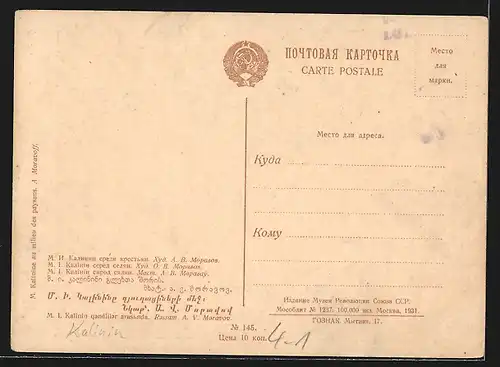 ПОЧТОВАЯ КАРТОЧКА
CARTE POSTALE
Место
для
марки.
Место для адреса.
Куда
Кому
M. Kalinine au milieu des paysans. A Moravoff.
М. И. Калинин среди крестьян. Худ. А. В. Моравов.
М. І. Калінін серед селян. Худ. О. В. Моравов.
М. І. Калінін сярод сялян. Маст. А. В. Мораваў.
მ. ი. კალინინი გლეხთა შორის.
მხატ. ა. ვ. მორავოვ.
Մ. Ի. Կալինինը գյուղացիների մեջ:
Նկար. Ա. Վ. Մորավով
M. I. Kalinin arasında. Rəssam A. V. Moravov.
№ 145.
Цена 10 коп.
Kalinin
4-1
Издание Музея Революции Союза ССР.
Мособлит № 1237. 100.000 экз. Москва, 1931.
ГОЗНАК. Мытная, 17.